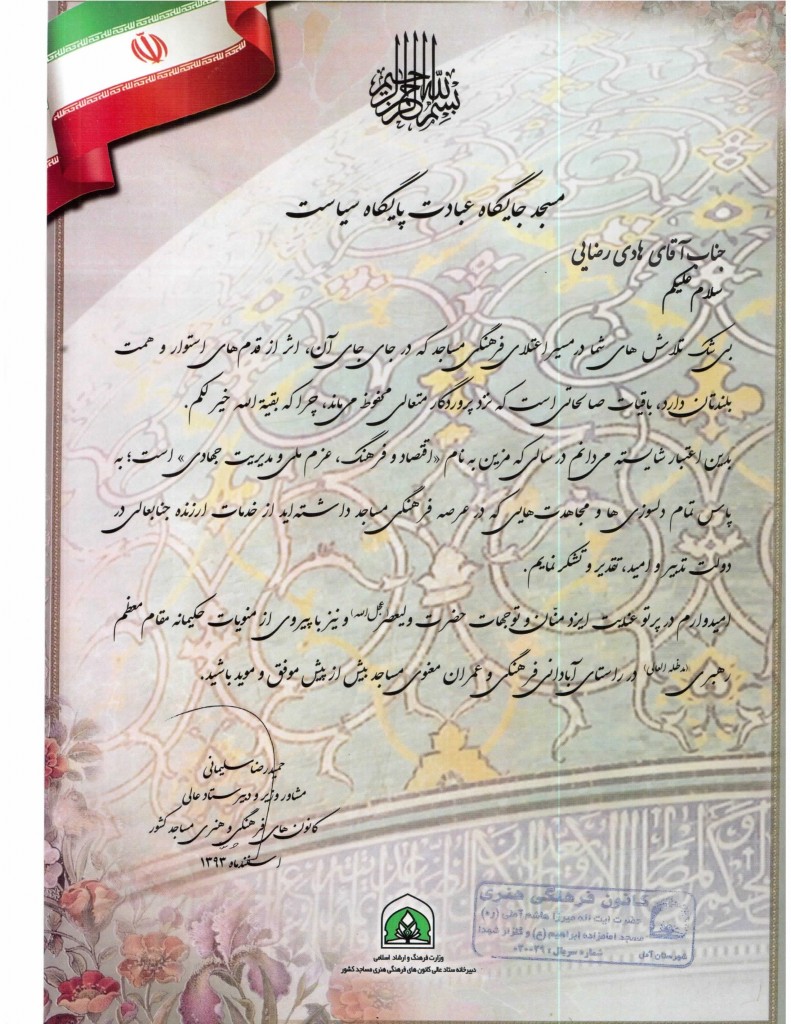 بسم الله الرحمن الرحیم
مسجد جایگاه عبادت پایگاه سیاست
جناب آقای هادی رضایی
سلام علیکم
بی شک تلاش های شما در مسیر اعتلای فرهنگی مساجد که در جای جای آن، اثر از قدم های استوار و همت
بلندتان دارد، باقیات صالحاتی است که نزد پروردگار متعالی محفوظ می‌ماند، چرا که بقیة الله خیر لکم.
بدین اعتبار شایسته می‌دانم در سالی که مزین به نام «اقتصاد و فرهنگ، عزم ملی و مدیریت جهادی» است؛ به
پاس تمام دلسوزی ها و مجاهدت‌هایی که در عرصه فرهنگی مساجد داشته‌اید از خدمات ارزنده جنابعالی در
دولت تدبیر و امید، تقدیر و تشکر نمایم.
امیدوارم در پرتو عنایت ایزد منّان و توجهات حضرت ولیعصر(عجل الله) و نیز با پیروی از منویات حکیمانه مقام معظم
رهبری(مدظله العالی) در راستای آبادانی فرهنگی و عمران معنوی مساجد بیش از پیش موفق و موید باشید.
حمیدرضا سلیمانی
مشاور وزیر و دبیر ستاد عالی
کانون های فرهنگی و هنری مساجد کشور
اسفندماه ۱۳۹۳
کانون فرهنگی هنری
حضرت آیت الله میرزا هاشم آملی (ره)
مسجد امامزاده ابراهیم (ع) و گلزار شهدا
شهرستان آمل شماره سریال: ۰۲۰۰۲۹
وزارت فرهنگ و ارشاد اسلامی
دبیرخانه ستاد عالی کانون های فرهنگی هنری مساجد کشور